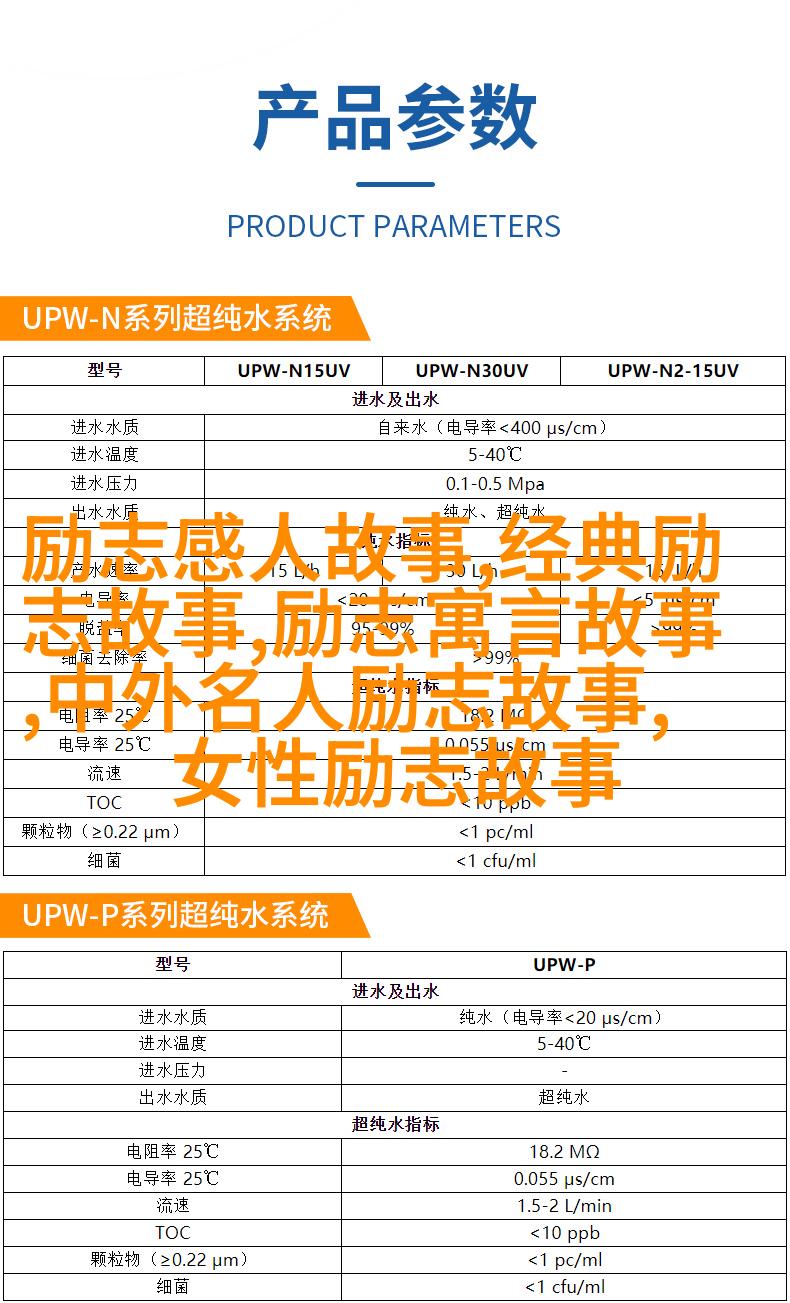 产品参数
PRODUCT PARAMETERS
UPW-N系列超纯水系统
型号 UPW-N15UV UPW-N30UV UPW-N2-15UV
进水及出水
进水水质 自来水（电导率<400 μs/cm）
进水温度 5-40℃
进水压力 0.1-0.5 Mpa
出水水质 纯水、超纯水
励志感人故事,经典励
志故事,励志寓言故事
,中外名人励志故事,
女性励志故事
纯水指标
产水速率 15 L/h 30 L/h
电导率
脱盐率 95-99%
细菌去除率 >99%
超纯水指标
电阻率 25℃ 18.2 MΩ
电导率 25℃ 0.055 μs/cm
流速 1.5-2 L/min
TOC <10 ppb
颗粒物（≥0.22 μm） <1 pc/ml
细菌 <1 cfu/ml
UPW-P系列超纯水系统
型号 UPW-P
进水及出水
进水水质 纯水（电导率<20 μs/cm）
进水温度 5-40℃
进水压力 -
出水水质 超纯水
超纯水指标
电阻率 25℃ 18.2 MΩ
电导率 25℃ 0.055 μs/cm
流速 1.5-2 L/min
TOC <10 ppb
颗粒物（≥0.22 μm） <1 pc/ml
细菌 <1 cfu/ml